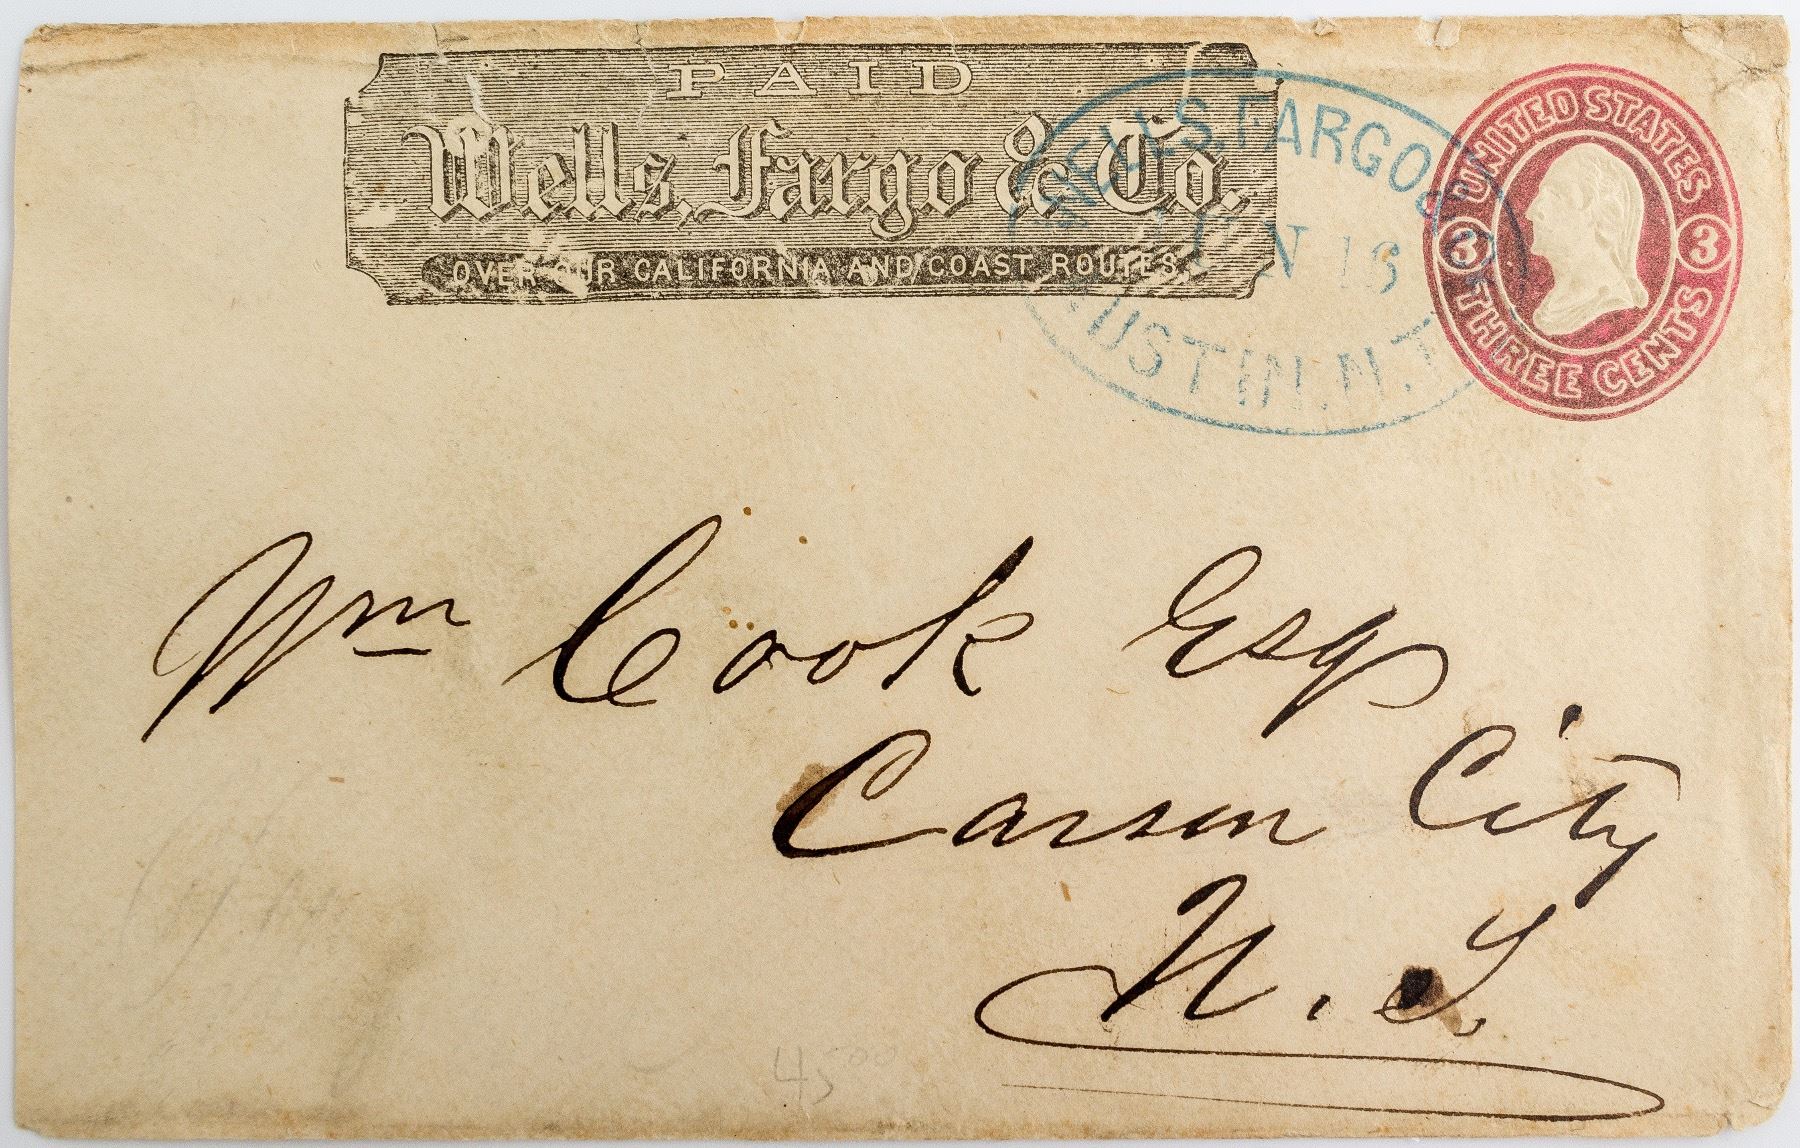 PAID
Wells, Fargo & Co.
OVER OUR CALIFORNIA AND COAST ROUTES.
WELLS, FARGO & CO
16
AUSTIN. N.T.
UNITED STATES
3 3
THREE CENTS
Wm Cook Esqr
Carson City
N. T.
45 00